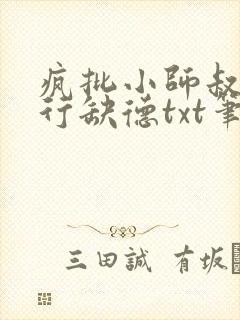 疯批小师叔
行缺德txt笔
三田誠 有坂